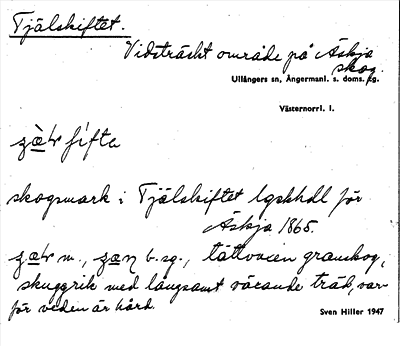 Tjälskiftet.
Vidsträckt område på Äskja
skog.
Ullångers sn, Ångermanl. s. doms. sg.
Västernorrl. l.
skogsmark i Tjälskiftet lgskhdl för
Äskja 1865.
b. sg., tättvuxen granskog,
skuggrik med långsamt växande träd, var-
för veden är hård.
Sven Hiller 1947